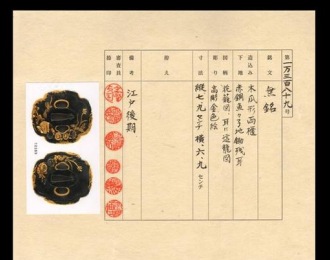 第一万三百八十九号
銘文 無銘
造込み 木瓜形 両櫃
下地 赤銅魚々子地 鋤残耳
図柄 花籠図 耳に這龍図
彫り 高彫金色絵
寸法 縦 七、九 センチ 横 六、九 センチ
押え
備考 江戸後期
審査員
極印